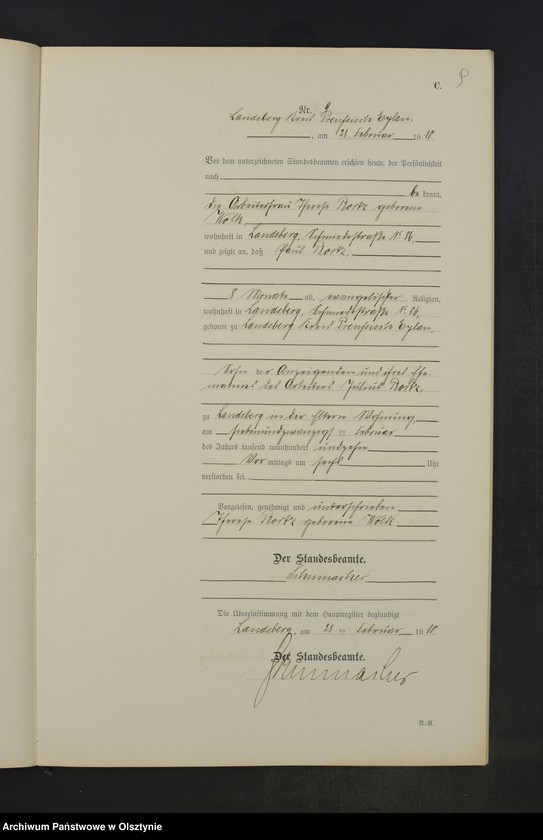 C. 9
Nr. 9
Landsberg Kreis Preußisch Eylau,
, am 21. Februar 1910.
Vor dem unterzeichneten Standesbeamten erschien heute, der Persönlichkeit
nach
be kannt,
die Arbeiterfrau Therese geborene
Wolk
wohnhaft in Landsberg, Schmiedestraße Nr. 86,
und zeigte an, daß Paul
8 Monate alt, evangelischer Religion,
wohnhaft in Landsberg, Schmiedestraße Nr. 86,
geboren zu Landsberg Kreis Preußisch Eylau,
Sohn der Anzeigenden und ihres Ehe-
mannes des Arbeiters Julius
zu Landsberg in der Eltern Wohnung,
am ten Februar
des Jahres tausend neunhundert und zehn
Vor mittags um sechs Uhr
verstorben sei.
Vorgelesen, genehmigt und unterschrieben
Therese geborene Wolk
Der Standesbeamte.
Schumacher
Die Übereinstimmung mit dem Hauptregister beglaubigt
Landsberg, am 21 ten Februar 1910.
Der Standesbeamte.
Schumacher
N.-R.
Archiwum Państwowe w Olsztynie